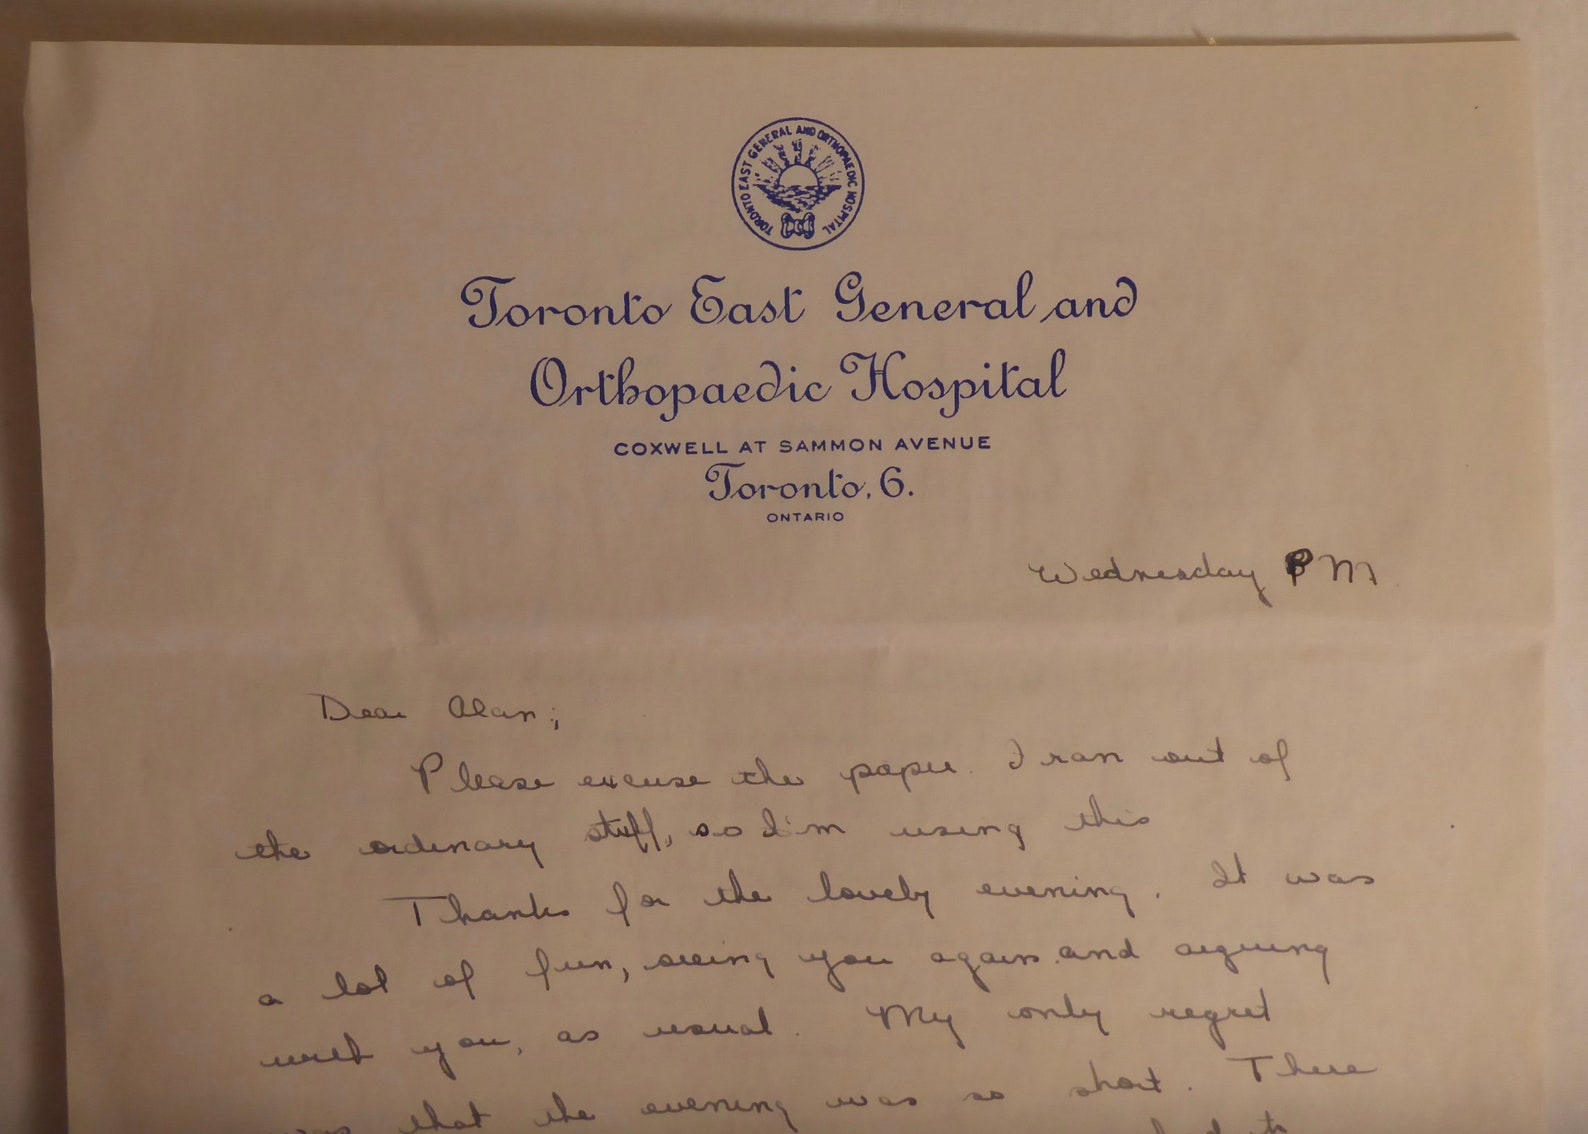 TORONTO EAST GENERAL AND ORTHOPAEDIC HOSPITAL
Toronto East General and
Orthopaedic Hospital
COXWELL AT SAMMON AVENUE
Toronto, 6.
ONTARIO
Wednesday PM
Dear Alan;
Please excuse the paper. I ran out of
the ordinary stuff, so I'm using this
Thanks for the lovely evening. It was
a lot of fun, seeing you again and arguing
with you, as usual. My only regret
was that the evening was so short. There